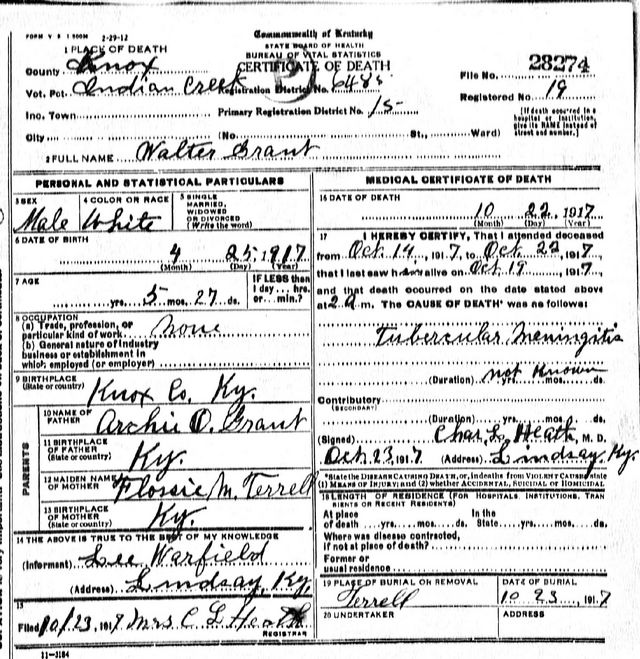 FORM V S 1 500M 2-29-12
Commonwealth of Kentucky
STATE BOARD OF HEALTH
BUREAU OF VITAL STATISTICS
CERTIFICATE OF DEATH
1 PLACE OF DEATH
County Knox
File No. 28274
Vot. Pct. Indian Creek Registration District No. 6485
Registered No. 19
Inc. Town Primary Registration District No. 15
[If death occurred in a hospital or institution, give its NAME instead of street and number.]
City (No. St., Ward)
2 FULL NAME Walter Grant
PERSONAL AND STATISTICAL PARTICULARS
3 SEX Male
4 COLOR OR RACE White
5 SINGLE MARRIED, WIDOWED OR DIVORCED (Write the word)
6 DATE OF BIRTH
4 25 1917
(Month) (Day) (Year)
7 AGE
yrs. 5 mos. 27 ds.
IF LESS than 1 day... hrs. or... min.?
8 OCCUPATION
(a) Trade, profession, or particular kind of work None
(b) General nature of industry
business or establishment in
which employed (or employer)
9 BIRTHPLACE
(State or country) Knox Co. Ky.
PARENTS
10 NAME OF FATHER Archie O. Grant
11 BIRTHPLACE OF FATHER (State or country) Ky.
12 MAIDEN NAME OF MOTHER Flossie M. Terrell
13 BIRTHPLACE OF MOTHER (State or country) Ky.
14 THE ABOVE IS TRUE TO THE BEST OF MY KNOWLEDGE
(Informant) Lee Warfield
(Address) Lindsay, Ky.
15
Filed 10/23, 1917 Mrs C L Heath
REGISTRAR
11-3184
MEDICAL CERTIFICATE OF DEATH
16 DATE OF DEATH
10 22, 1917
(Month) (Day) (Year)
17 I HEREBY CERTIFY, That I attended deceased
from Oct. 14, 1917, to Oct. 22 1917,
that I last saw h alive on Oct. 19, 1917,
and that death occurred on the date stated above
at 2 a m. The CAUSE OF DEATH* was as follows:
Tubercular Meningitis
(Duration) not known yrs. mos. ds.
Contributory
(SECONDARY)
(Duration) yrs. mos. ds.
(Signed) Chas. L. Heath, M. D.
Oct. 23, 1917 (Address) Lindsay Ky.
*State the DISEASE CAUSING DEATH, or, in deaths from VIOLENT CAUSES state
(1) MEANS OF INJURY; and (2) whether ACCIDENTAL, SUICIDAL or HOMICIDAL
18 LENGTH OF RESIDENCE (FOR HOSPITALS, INSTITUTIONS, TRANSIENTS OR RECENT RESIDENTS)
At place of death yrs. mos. ds. In the State yrs. mos. ds.
Where was disease contracted,
if not at place of death?
Former or
usual residence
19 PLACE OF BURIAL OR REMOVAL Terrell
DATE OF BURIAL 10 23, 1917
20 UNDERTAKER
ADDRESS